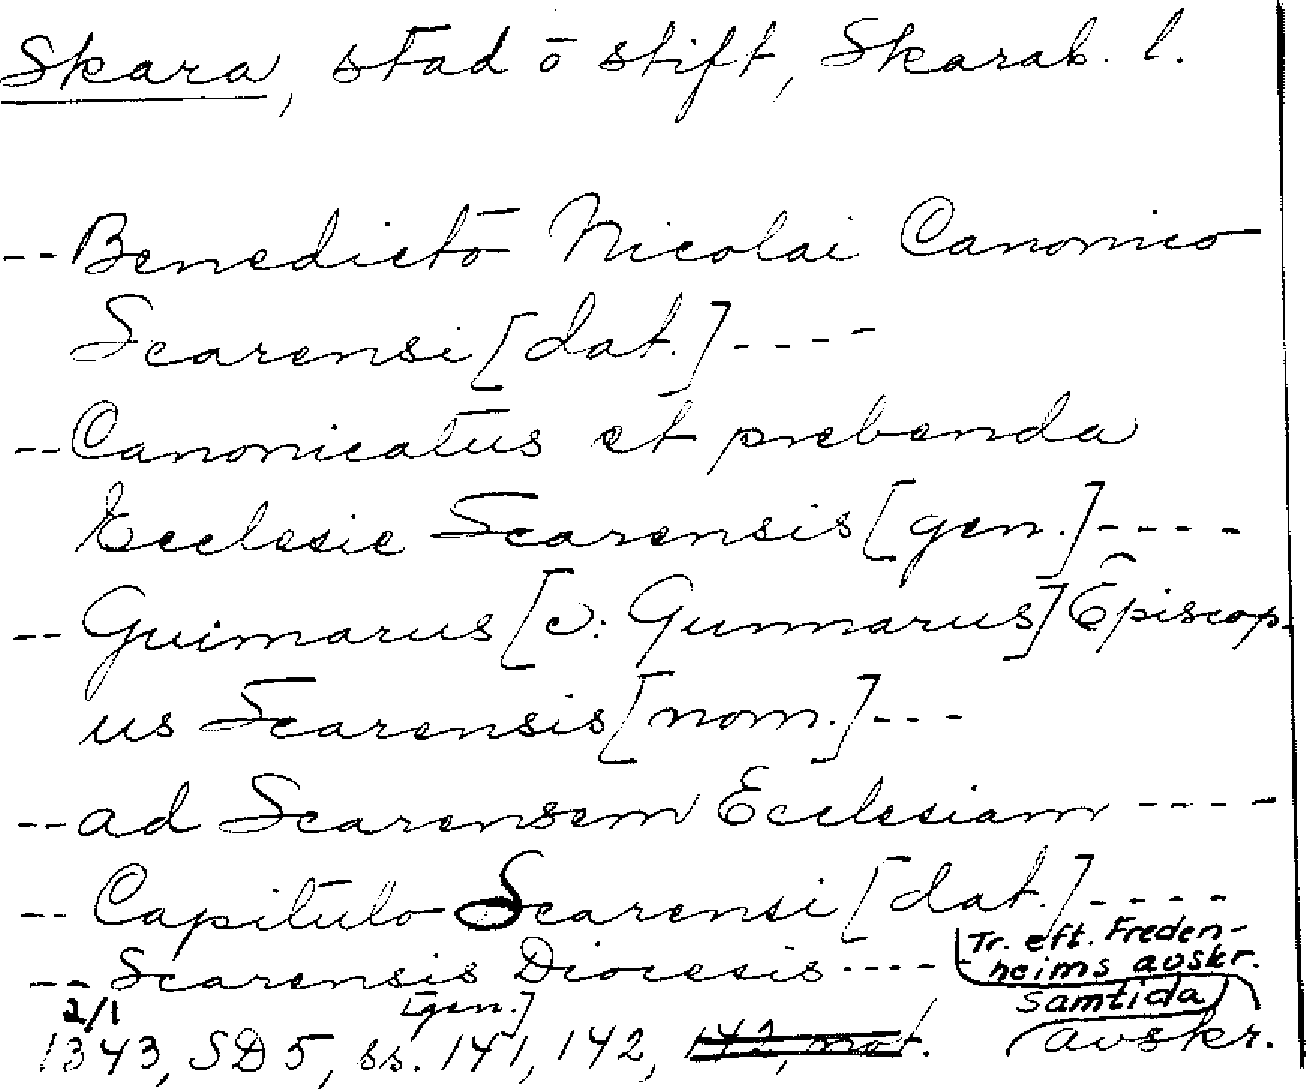 Skara, stad o stift, Skarab. l.
-- Benedicto Nicolai Canonico
Scarensi [dat.] ----
-- Canonicatus et prebenda
Ecclesie Scarensis [gen.] ----
-- Guimarus [ɔ: Gunnarus] Episcop-
us Scarensis [nom.] ---
-- ad Scarensem Ecclesiam ----
-- Capitulo Scarensi [dat.] -----
-- Scarensis Diocesis ----
[gen.]
Tr. eft. Freden-
heims avskr.
Samtida
avskr.
2/1
1343, SD 5, ss. 141, 142,